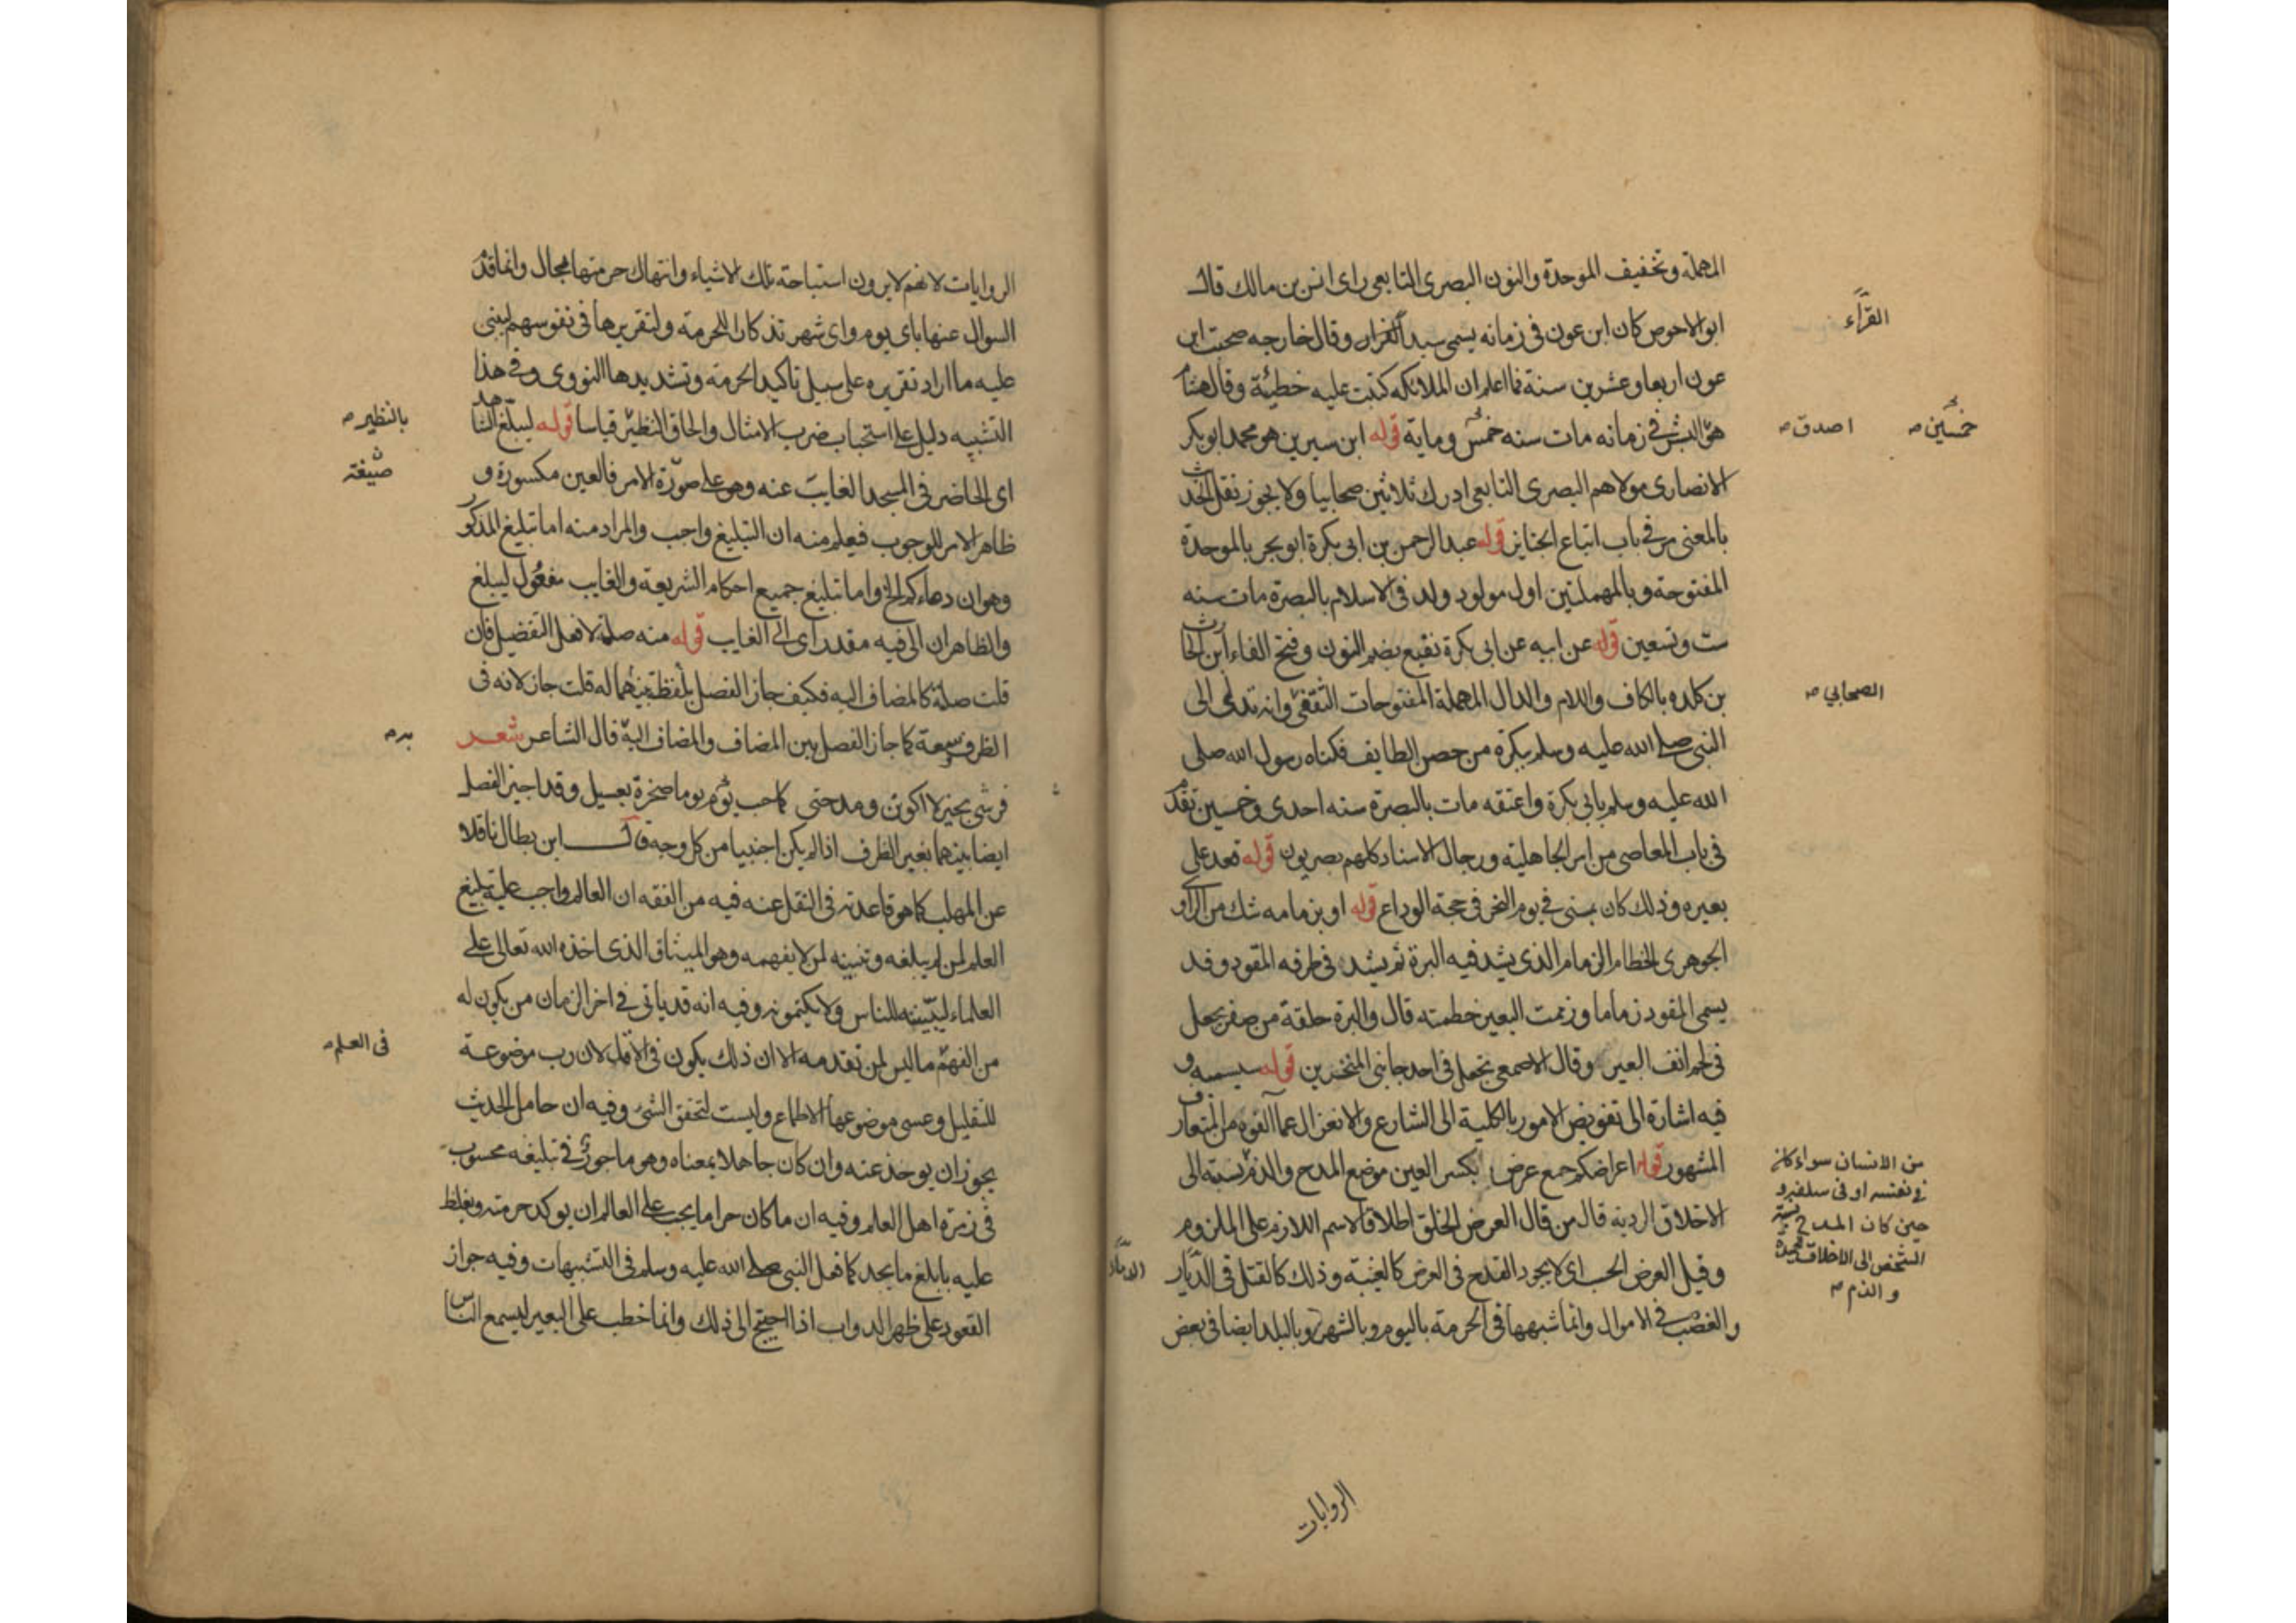 المهملة وتخفيف الموحدة والنون البصرى التابعى راى انس بن مالك قال
ابو الاحوص كان ابن عون فى زمانه يسمى سيد القراء وقال خارجه صحبت ابن
عون اربعا وعشرين سنة فما اعلم ان الملائكه كتبت عليه خطيئة وقال هشام
هو فى زمانه مات سنه خمس وماية قوله ابن سيرين هو محمد ابو بكر
الانصارى مولاهم البصرى التابعى ادرك ثلاثين صحابيا ولا يجوز نقل الحديث
بالمعنى مر فى باب اتباع الجنايز قوله عبد الرحمن بن ابى بكرة ابو بحر بالموحدة
المفتوحة وبالمهملتين اول مولود ولد فى الاسلام بالبصرة مات سنه
ست وتسعين قوله عن ابيه عن ابى بكرة نفيع بضم النون وفتح الفاء ابن الحارث
بن كلده بالكاف واللام والدال المهملة المفتوحات الثقفى وانه تدلى الى
النبى صلى الله عليه وسلم ببكرة من حصن الطايف فكناه رسول الله صلى
الله عليه وسلم بابى بكرة واعتقه مات بالبصرة سنه احدى وخمسين تقدم
فى باب المعاصى من امر الجاهلية ورجال الاسناد كلهم بصريون قوله قعد على
بعيره وذلك كان بمنى فى يوم النحر فى حجة الوداع قوله او بزمامه شك من الراوى
الجوهرى الخطام الزمام الذى يشد فيه البرة ثم يشد فى طرفه المقود وقد
يسمى المقود زماما وزممت البعير خطمته قال والبرة حلقة من صفر يجعل
فى لحم انف البعير وقال الاصمعى تجعل فى احد جانبى المنخرين قوله سيسميه و
فيه اشارة الى تفويض الامور بالكلية الى الشارع والانعزال عما الفوه من المتعارف
المشهور قوله اعراضكم جمع عرض بكسر العين موضع المدح والذم نسبة الى
الاخلاق الردية قال من قال العرض الخلق اطلاقا لاسم اللازم على الملزوم
وقيل العرض الحسب اى لا يجوز القدح فى العرض كالغيبة وذلك كالقتل فى الديار
والغصب فى الاموال وانما شبهها فى الحرمة باليوم وبالشهر وبالبلد ايضا فى بعض
الروايات
القراء
خمسين
اصدق
الصحابي
من الانسان سواء كان
فى نفسه او فى سلفه و
حين كان المدح نسبة
الشخص الى الاخلاق الحميدة
والذم
الديار
الروايات لانهم لا يرون استباحة تلك الاشياء وانتهاك حرمتها بحال وانما قدم
السوال عنها باى يوم واى شهر تذكارا للحرمة ولتقريرها فى نفوسهم ليبنى
عليه ما اراد تقريره على سبيل تاكيد الحرمة وتشديدها النووى وفى هذا
التشبيه دليل على استحباب ضرب الامثال والحاق النظير قياسا قوله ليبلغ الشاهد
اى الحاضر فى المسجد الغايب عنه وهو على صورة الامر فالعين مكسورة و
ظاهر الامر للوجوب فيعلم منه ان التبليغ واجب والمراد منه اما تبليغ المذكور
وهو ان دماءكم الخ واما تبليغ جميع احكام الشريعة والغايب مفعول ليبلغ
والظاهر ان الى فيه مقدر اى الى الغايب قوله منه صلة لافعل التفضيل فان
قلت صلته كالمضاف اليه فكيف جاز الفصل بلفظة بينهما له قلت جاز لانه فى
الظرف سعة كما جاز الفصل بين المضاف والمضاف اليه قال الشاعر شعر
فرشنى بخير لا اكونن ومدحتى كناحت يوم يوما صخرة بعسيل وقد اجيز الفصل
ايضا بينهما بغير الظرف اذا لم يكن اجنبيا من كل وجه قال ابن بطال ناقلا
عن المهلب كما هو قاعدته فى النقل عنه فيه من الفقه ان العالم واجب عليه تبليغ
العلم لمن لم يبلغه وتبيينه لمن لا يفهمه وهو الميثاق الذى اخذه الله تعالى على
العلماء ليبيننه للناس ولا يكتمونه وفيه انه قد ياتى فى اخر الزمان من يكون له
من الفهم ما ليس لمن تقدمه الا ان ذلك يكون فى الاقل لان رب موضوعة
للتقليل وعسى موضوعها الاطماع وليست لتحقق الشى وفيه ان حامل الحديث
يجوز ان يوخذ عنه وان كان جاهلا بمعناه وهو ماجور فى تبليغه محسوب
فى زمرة اهل العلم وفيه ان ما كان حراما يجب على العالم ان يوكد حرمته ويغلظ
عليه بابلغ ما يجد كما فعل النبى صلى الله عليه وسلم فى التشبيهات وفيه جواز
القعود على ظهر الدواب اذا احتيج الى ذلك وانما خطب على البعير ليسمع الناس
بالنظير
صيغة
به
فى العلم